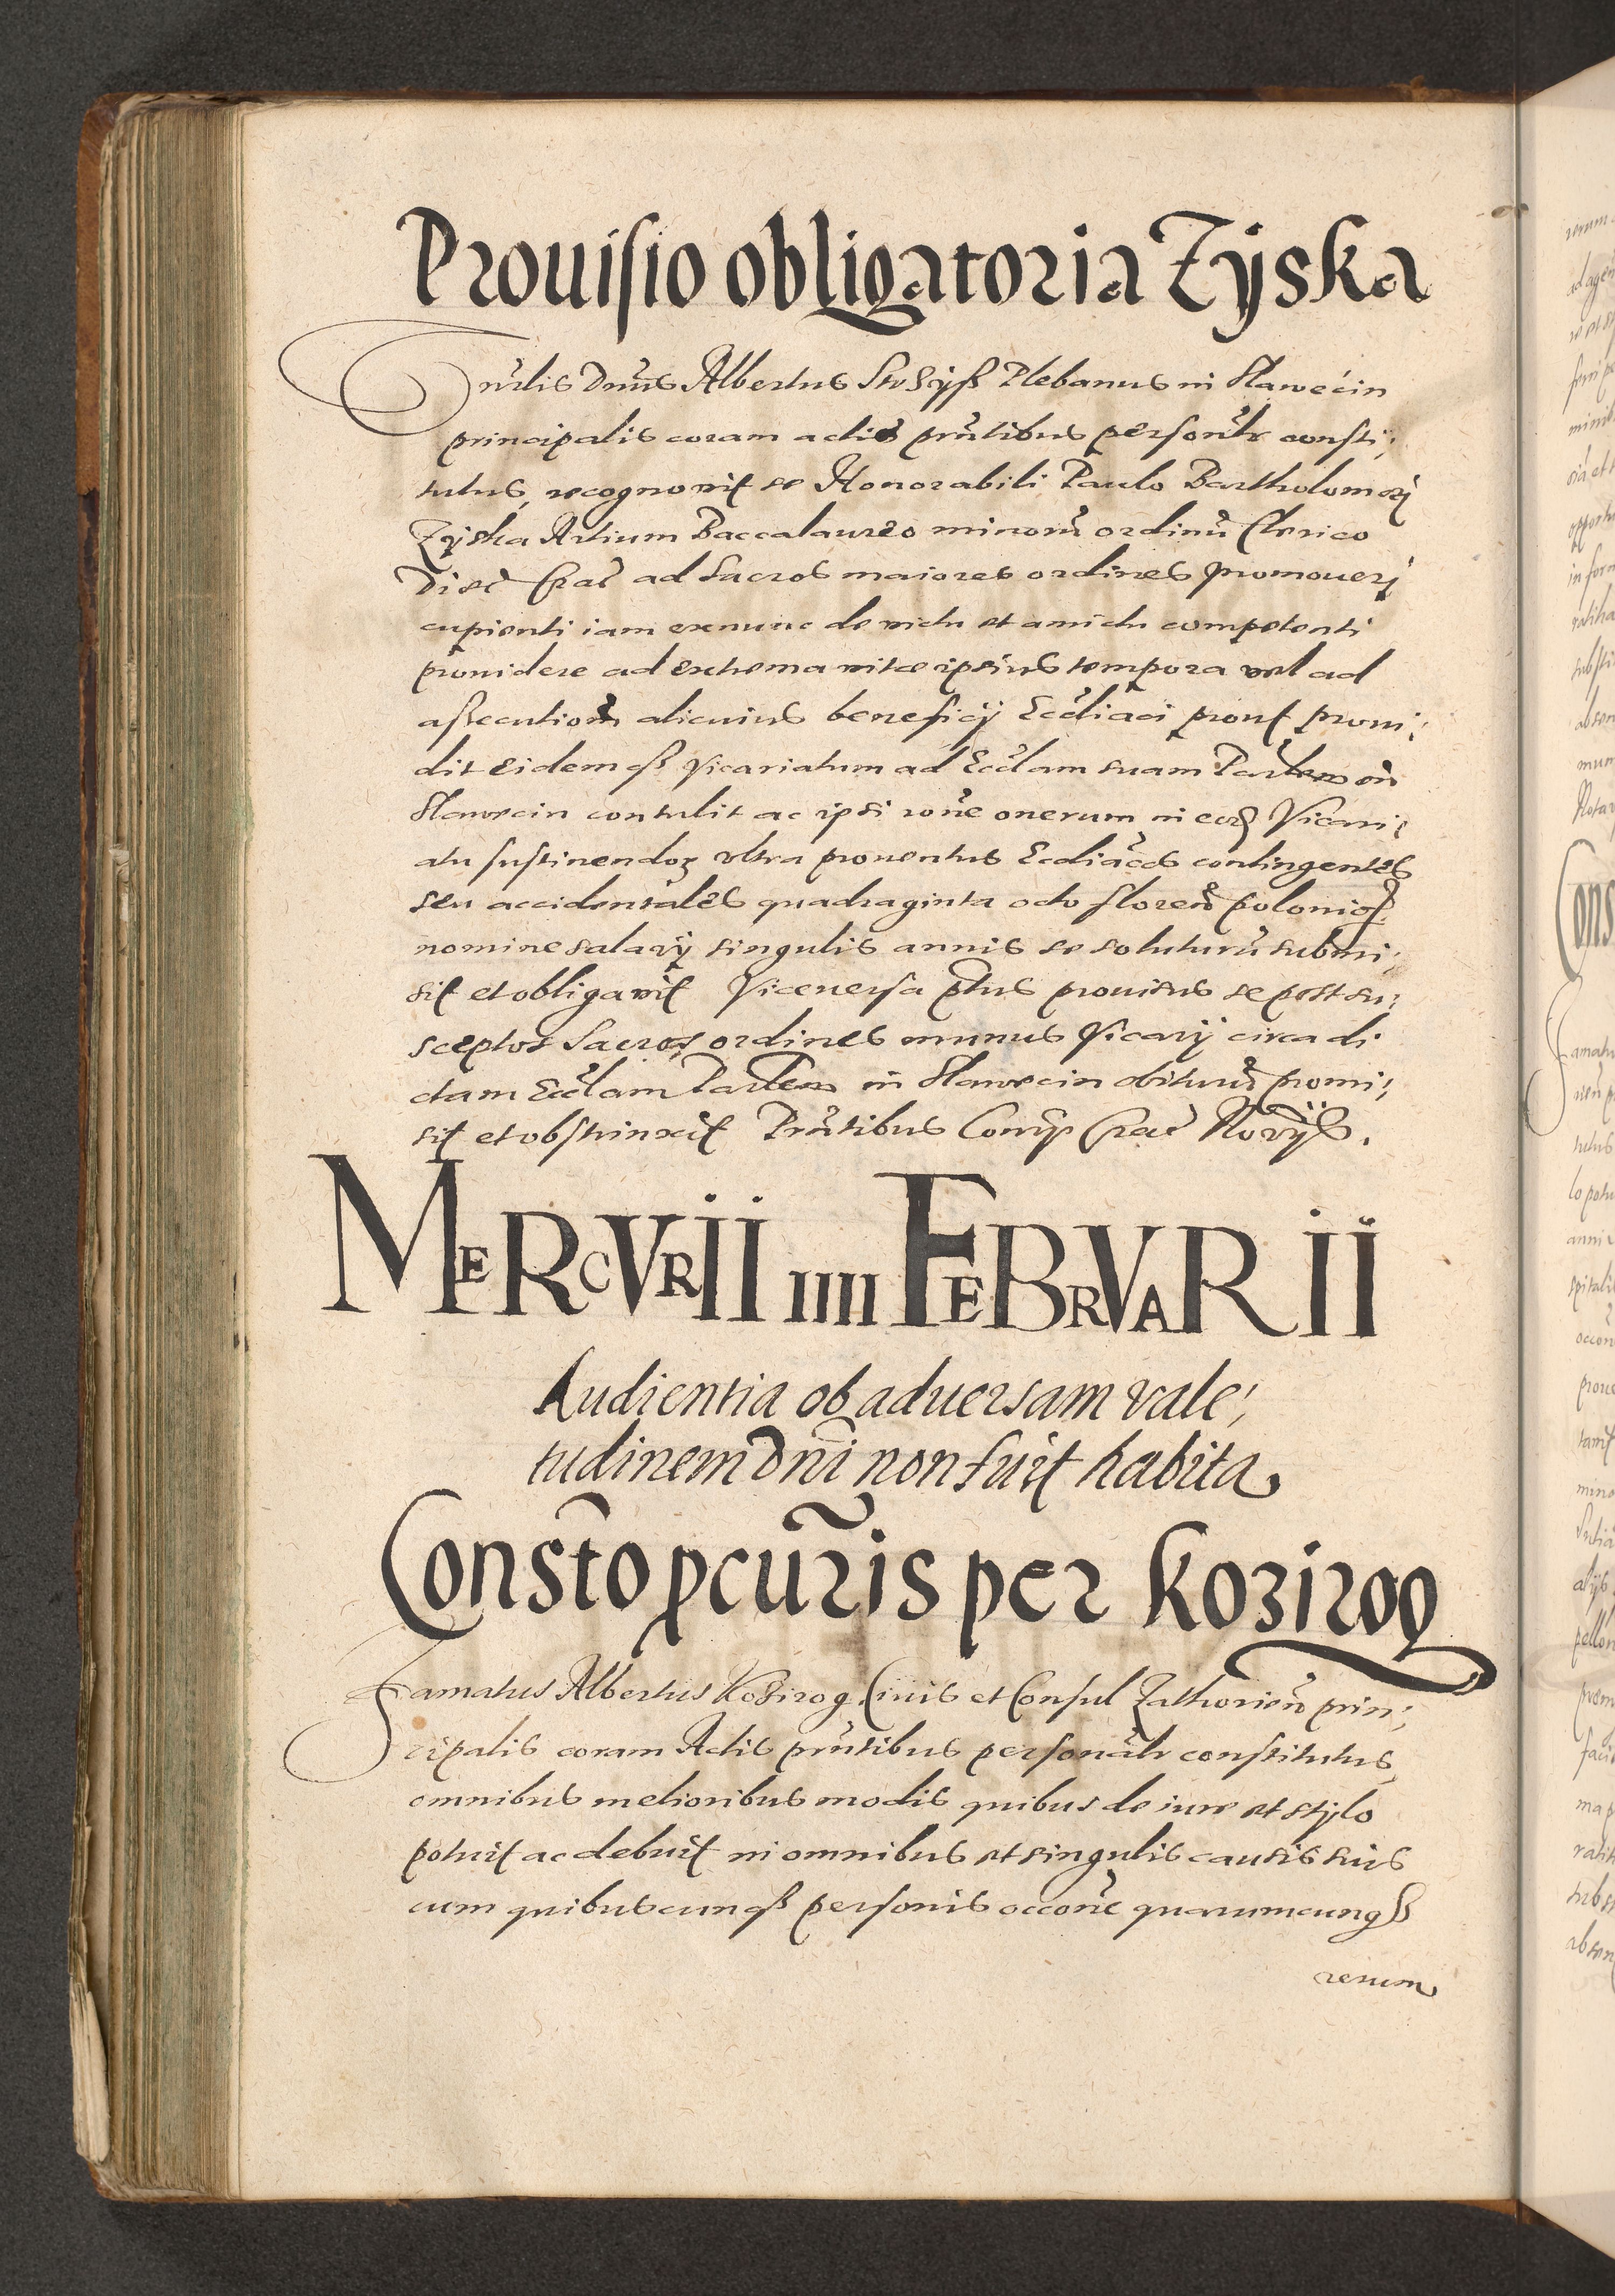 Prouisio obligatoria Zyska
Dnus Albertus Plebanus in Slawecin
principalis coram actis pñtibus personalr consti,
tutus, recognouit se Honorabili Paulo Bartholomei
Zyska Artium Baccalaureo minorũ ordinũ Clerico
Dioec Crac ad sacros maiores ordines promoueri
cupienti iam exnunc de victu et amictu competenti
prouidere ad extrema vitæ ipsius tempora vel ad
assecutionem alicuius beneficij Eccliaci prout proui,
dit eidemqꝫ Vicariatum ad Eccłam suam in
Slawecin contulit ac ipsi rõne onerum in eodẽ Vicari,
atu sustinendoꝝ vltra prouentus Eccliacos contingentes
seu accidentales quadraginta octo floreñ
nomine salarij singulis annis se soluturũ submi,
sit et obligauit Viceuersa pfatus prouisus se post su,
sceptos Sacros ordines munus Vicarij circa di
ctam Eccłam in Slawecin obiturũ promi,
sit et obstrinxit Pñtibus Crac
MERCVRII IIII FEBRVARII
Audientia ob aduersam vale,
tudinem Dñi non fuit habita
Constõ pcuris per Kozirog
Famatus Albertus Kozirog Ciuis et Consul Zathorieñ prin,
cipalis coram Actis pñtibus personalr constitutus,
omnibus melioribus modis quibus de iure et stylo
potuit ac debuit in omnibus et singulis causis suis
cum quibuscunqꝫ personis occõne quarumcunqꝫ
rerum